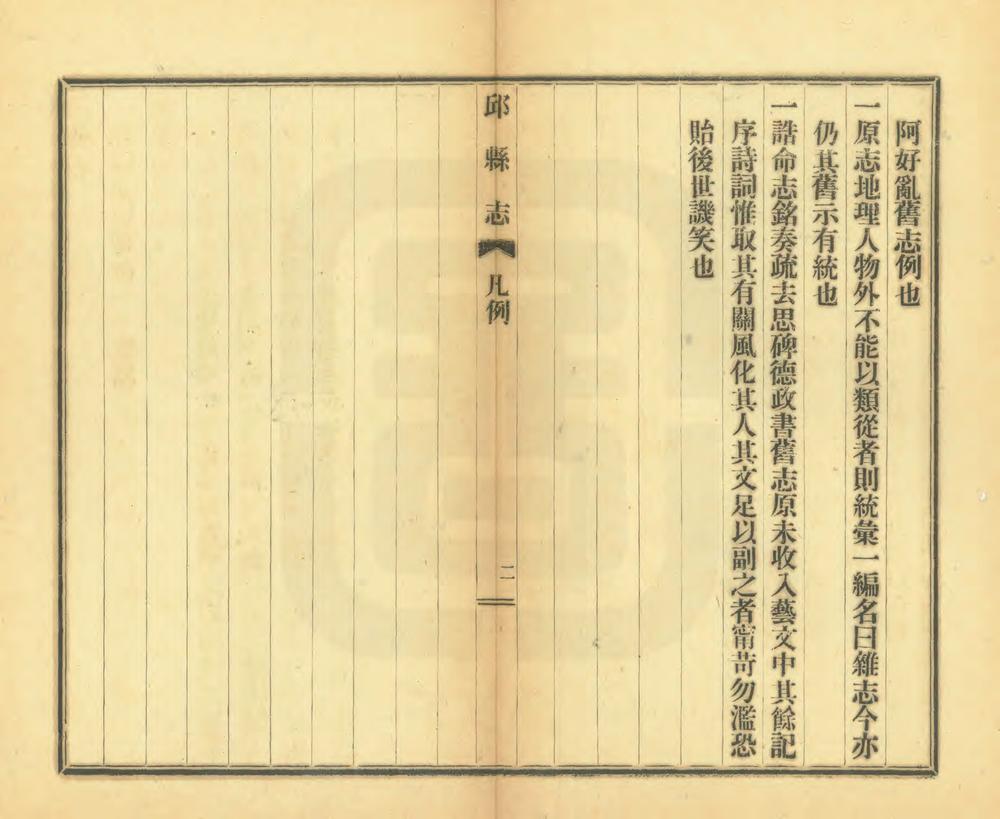 阿好亂舊志例也
一原志地理人物外不能以類從者則統彙一編名曰雜志今亦
仍其舊示有統也
一誥命志銘奏疏去思碑德政書舊志原未收入藝文中其餘記
序詩詞惟取其有關風化其人其文足以副之者甯苛勿濫恐
貽後世譏笑也
邱縣志 凡例 二